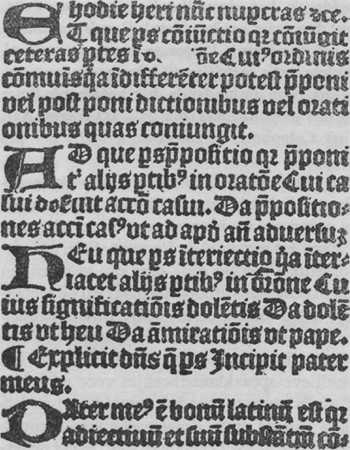 hodie heri nūc nuꝑ cras ⁊ce.
ET que ꝑs cōiūctio qꝛ cōiūgit
ceteras ꝑtes ōe Cuiꝰ ordinis
cōmuīs q̄a īdifferēter poteſt p̄poni
vel poſt poni dictionibus vel orati
onibus quas coniungit.
AD que ꝑs p̄poſitio qꝛ p̄poni
tᷣ alijs ꝑtibꝰ in oratōe Cui ca
ſui accō caſui. Da p̄poſitio⸗
nes accī caſꝰ vt ad apd an̄ aduerſuꝫ
HEu que ꝑs īteriectio q̄a īter⸗
iacet alijs ꝑtibꝰ in orōne Cu
ius ſignificatiōis dolētis Da dolē
tis vt heu Da amiratiōis vt pape.
¶ Explicit dn̄s q̄ ꝑs Incipit pater
meus.
PAter meꝰ ē bonū latinū eſt qꝛ
adiectiuū et ſuū ſubſtātiuū cō⸗